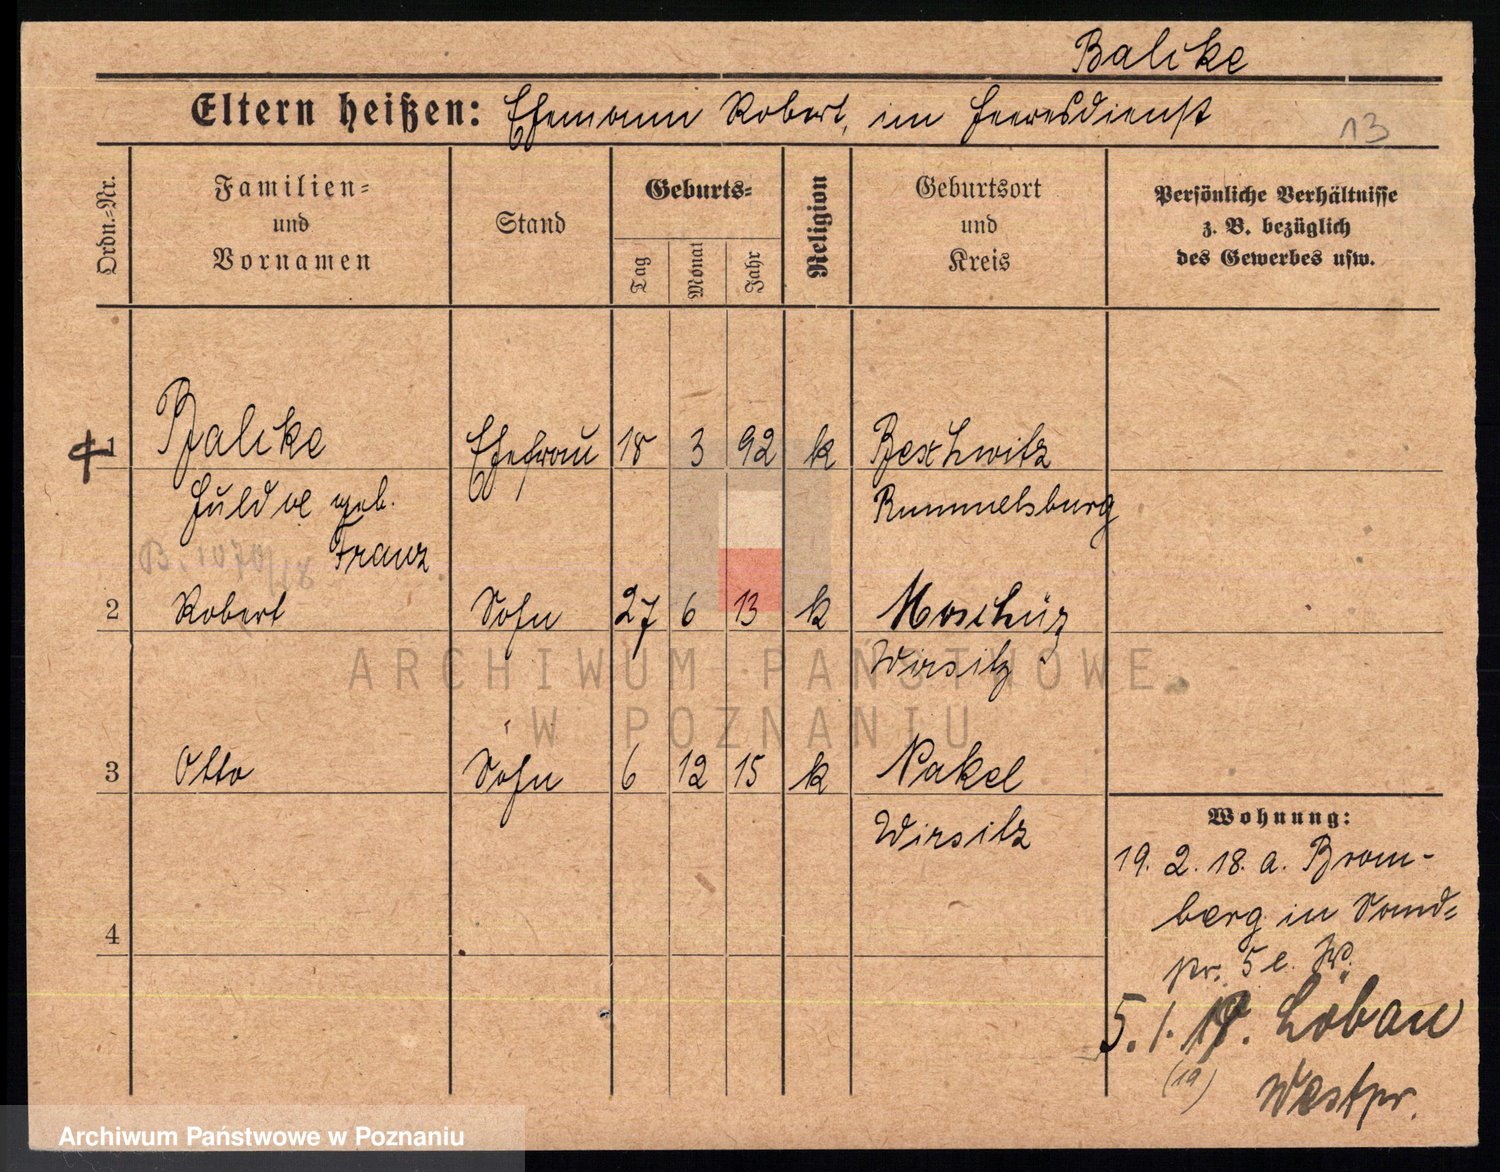 Balcke
Eltern heißen: Ehemann Robert, im Heeresdienst
13
Ordn.-Nr.
Familien-
und
Vornamen
Stand
Geburts-
Tag
Monat
Jahr
Religion
Geburtsort
und
Kreis
Persönliche Verhältnisse
z. B. bezüglich
des Gewerbes usw.
1 Balcke Ehefrau 18 3 92 k
Hulda geb. Rummelsburg
Franz
2 Robert Sohn 27 6 13 k Moschütz
Wirsitz
ARCHIWUM PAŃSTWOWE
W POZNANIU
3 Otto Sohn 6 12 15 k Nakel
Wirsitz
Wohnung:
19. 2. 18. a. Brom-
berg in Sand-
pr. 5 e.
4
5. 1. Löbau
(19)
Westpr.
Archiwum Państwowe w Poznaniu